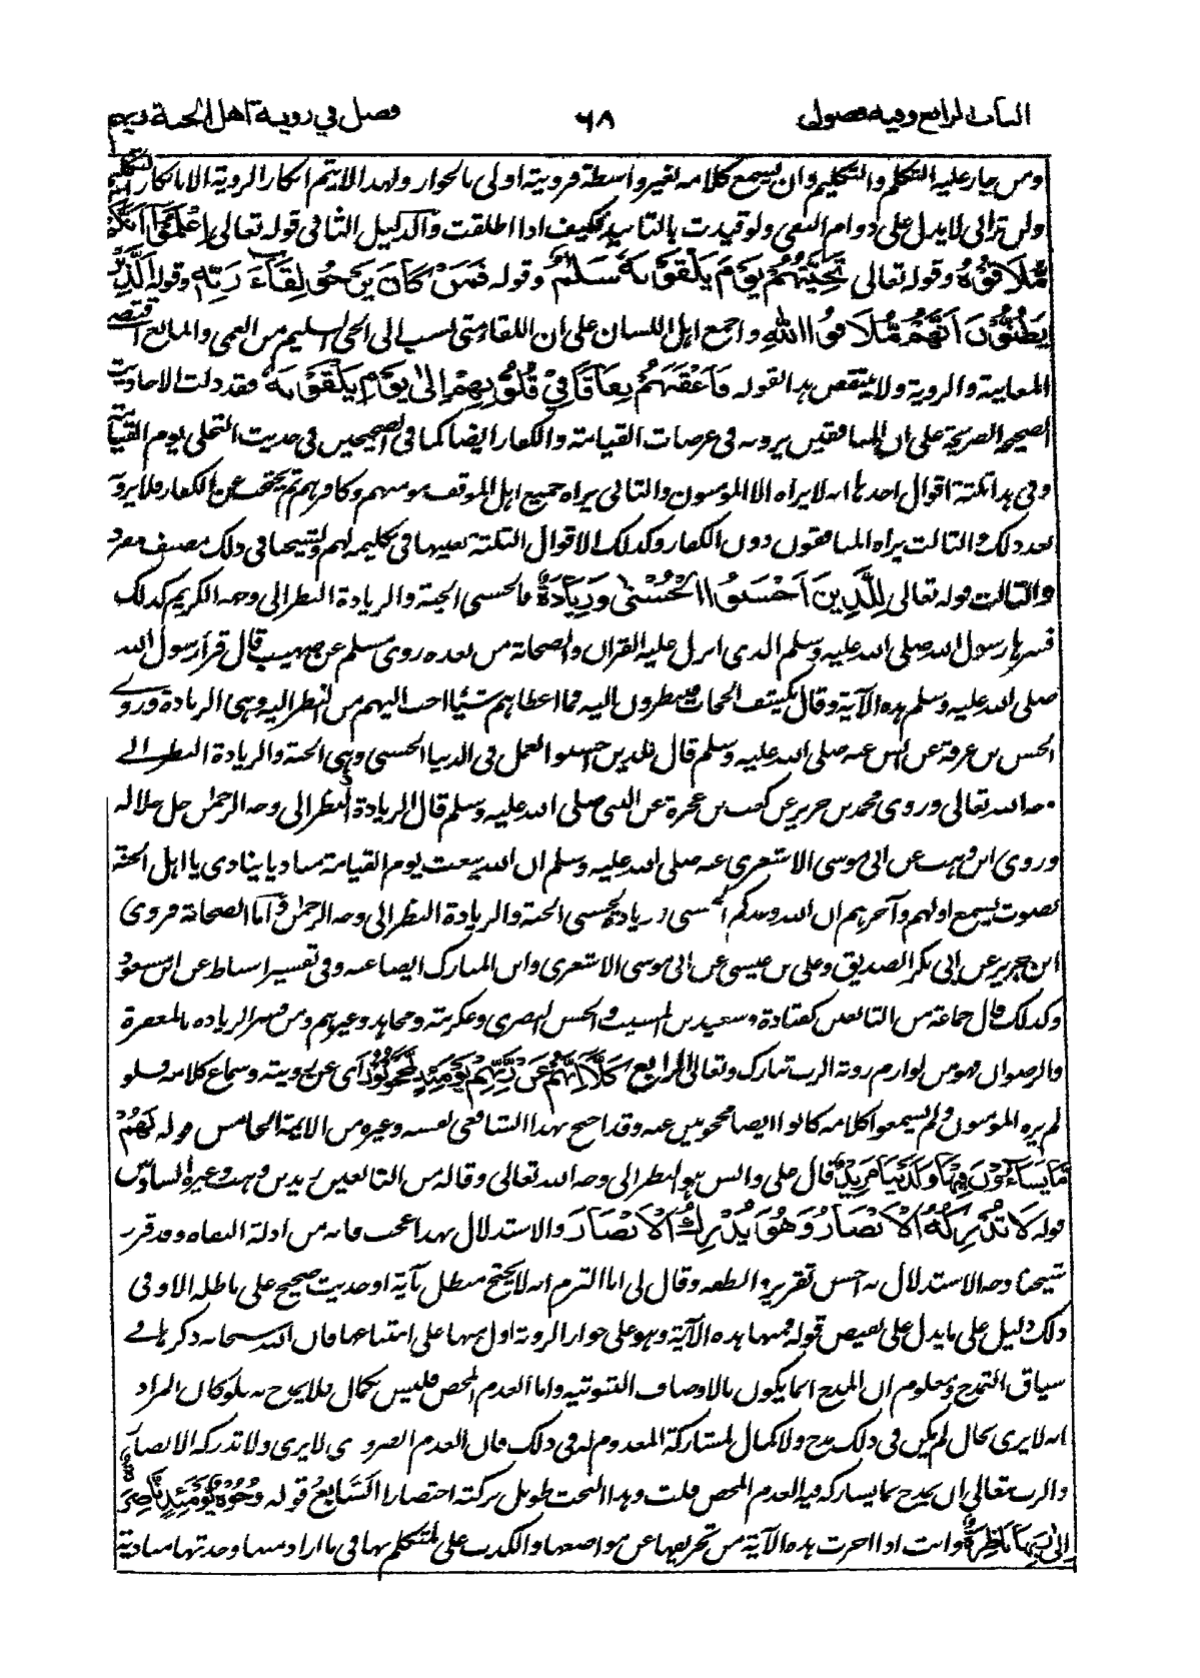 الباب الرابع وفيه فصول ٦٨ فصل في روية اهل الجنة ربهم
ومن جاز عليه التكلم والتكليم وان يسمع كلامه بغير واسطة فرويته اولى بالجواز ولهذا لا يتم انكار الروية الا بانكار التكليم
ولن تراني لا يدل على دوام النفى ولو قيدت بالتابيد فكيف اذا اطلقت والدليل الثاني قوله تعالى وَاعْلَمُوْا اَنَّكُمْ
مُّلَاقُوْهُ وقوله تعالى تَحِيَّتُهُمْ يَوْمَ يَلْقَوْنَهٗ سَلٰمٌ وقوله فَمَنْ كَانَ يَرْجُوْ لِقَآءَ رَبِّهٖ وقوله الَّذِيْنَ
يَظُنُّوْنَ اَنَّهُمْ مُّلَاقُوا اللهِ واجمع اهل اللسان على ان اللقاء متى نسب الى الحي السليم من العمى والمانع اقتضى
المعاينة والروية ولا ينتقض بهذا لقوله فَاَعْقَبَهُمْ نِفَاقًا فِيْ قُلُوْبِهِمْ اِلٰى يَوْمِ يَلْقَوْنَهٗ فقد دلت الاحاديث
الصحيحة الصريحة على ان المنافقين يرونه في عرصات القيامة والكفار ايضا كما في الصحيحين في حديث التجلى يوم القيامة
وفي هذا ثلثة اقوال احدها انه لا يراه الا المؤمنون والثاني يراه جميع اهل الموقف مومنهم وكافرهم ثم يحتجب عن الكفار فلا يرونه
بعد ذلك والثالث يراه المنافقون دون الكفار وكذلك الاقوال الثلثة بعينها في تكليمه لهم ولشيخنا في ذلك مصنف مفرد
والثالث قوله تعالى لِلَّذِينَ اَحْسَنُوا الْحُسْنٰى وَزِيَادَةٌ فالحسنى الجنة والزيادة النظر الى وجهه الكريم كذلك
فسرها رسول الله صلى الله عليه وسلم الذي انزل عليه القران والصحابة من بعده روى مسلم عن صهيب قال قرا رسول الله
صلى الله عليه وسلم هذه الآية وقال فيكشف الحجاب فينظرون اليه فما اعطاهم شيئا احب اليهم من النظر اليه وهي الزيادة وروى
الحسن بن عرفة عن انس عنه صلى الله عليه وسلم قال للذين احسنوا العمل في الدنيا الحسنى وهي الجنة والزيادة النظر الى
وجه الله تعالى وروى محمد بن جرير عن كعب بن عجرة عن النبي صلى الله عليه وسلم قال الزيادة النظر الى وجه الرحمن جل جلاله
وروى ابن وهب عن ابي موسى الاشعري عنه صلى الله عليه وسلم ان الله يبعث يوم القيامة مناديا ينادى يا اهل الجنة
بصوت يسمع اولهم وآخرهم ان الله وعدكم الحسنى وزيادة فالحسنى الجنة والزيادة النظر الى وجه الرحمن واما الصحابة فروى
ابن جرير عن ابي بكر الصديق وعلى بن عيسى عن ابي موسى الاشعرى وابن المبارك ايضا عنه وفي تفسير اسباط عن ابن مسعود
وكذلك قال جماعة من التابعين كقتادة وسعيد بن المسيب والحسن البصرى وعكرمة ومجاهد وغيرهم ومن فسر الزيادة بالمغفرة
والرضوان فهو من لوازم روية الرب تبارك وتعالى الرابع كَلَّا اِنَّهُمْ عَنْ رَّبِّهِمْ يَوْمَئِذٍ لَّمَحْجُوْبُوْنَ اى عن رويته وسماع كلامه فلو
لم يره المؤمنون ولم يسمعوا كلامه كانوا ايضا محجوبين عنه وقد احتج بهذا الشافعى نفسه وغيره من الايمة الخامس قوله لَهُمْ
مَّا يَشَآءُوْنَ فِيْهَا وَلَدَيْنَا مَزِيْدٌ قال على وانس هو النظر الى وجه الله تعالى وقاله من التابعين زيد بن وهب وغيره السادس
قوله لَا تُدْرِكُهُ الْاَبْصَارُ وَهُوَ يُدْرِكُ الْاَبْصَارَ والاستدلال بهذا عجب فانه من ادلة النفاة وقد قرر
شيخنا وجه الاستدلال به احسن تقرير والطفه وقال لى انا التزم انه لا يحتج مبطل بآية او حديث صحيح على باطله الا وفي
ذلك دليل على ما يدل على نقيض قوله فمنها هذه الآية وهو على جواز الروية اول منها على امتناعها فان الله سبحانه ذكرها في
سياق التمدح ومعلوم ان المدح انما يكون بالاوصاف الثبوتية واما العدم المحض فليس بكمال فلا يمدح به فلو كان المراد
انه لا يرى بحال لم يكن في ذلك مدح ولا كمال لمشاركة المعدوم له في ذلك فان العدم الصرف لا يرى ولا تدركه الابصار
والرب تعالى ان يمدح بما يشاركه فيه العدم المحض قلت وهذا البحث طويل تركته اختصارا السَّابِعُ قوله وُجُوْهٌ يَّوْمَئِذٍ نَّاضِرَةٌ
اِلٰى رَبِّهَا نَاظِرَةٌ وانت اذا اجرت هذه الآية من تحريفها عن مواضعها والكذب على المتكلم بها في ما اراد منها وجدتها منادية